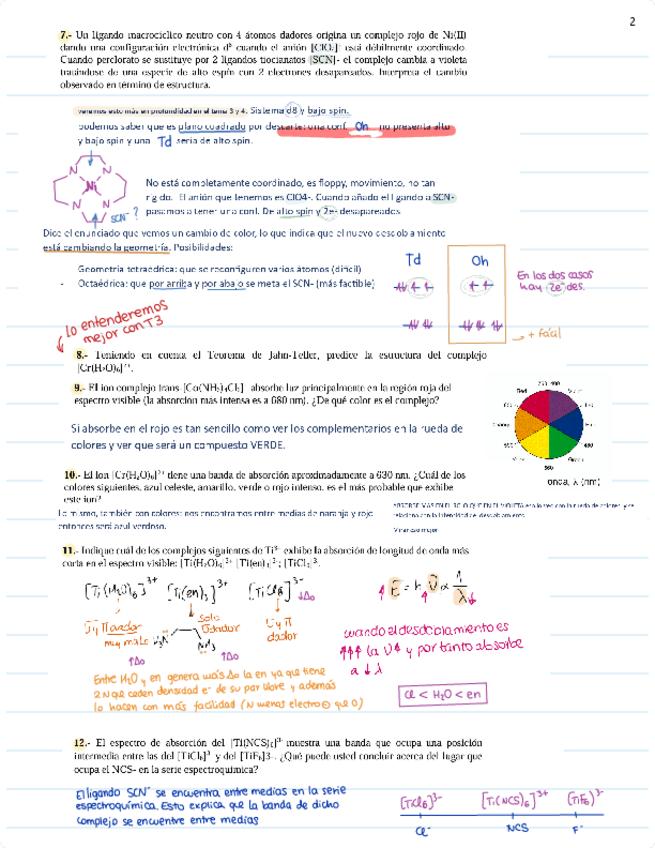 2
7.- Un ligando macrocíclico neutro con 4 átomos dadores origina un complejo rojo de Ni(II)
dando una configuración electrónica d⁸ cuando el anión [ClO₄]⁻ está débilmente coordinado.
Cuando perclorato se sustituye por 2 ligandos tiocianatos [SCN]- el complejo cambia a violeta
tratándose de una especie de alto espín con 2 electrones desapareados. Interpreta el cambio
observado en término de estructura.
veremos esto más en profundidad en el tema 3 y 4. Sistema d8 y bajo spin.
podemos saber que es plano cuadrado por descarte: una conf. Oh no presenta alto
y bajo spin y una Td sería de alto spin.
N N
Ni
N N
SCN⁻ ?
No está completamente coordinado, es floppy, movimiento, no tan
rígido. El anión que tenemos es ClO4-. Cuando añado el ligando a SCN-
pasamos a tener una conf. De alto spin y 2e- desapareados
Dice el enunciado que vemos un cambio de color, lo que indica que el nuevo desdoblamiento
está cambiando la geometría. Posibilidades:
Geometría tetraédrica: que se reconfiguren varios átomos (difícil)
- Octaédrica: que por arriba y por abajo se meta el SCN- (más factible)
Td
Oh
En los dos casos
hay 2e⁻ des.
+ fácil
Lo entenderemos
mejor con T3
8.- Teniendo en cuenta el Teorema de Jahn-Teller, predice la estructura del complejo
[Cr(H₂O)₆]²⁺.
9.- El ion complejo trans-[Co(NH₃)₄Cl₂]⁺ absorbe luz principalmente en la región roja del
espectro visible (la absorción más intensa es a 680 nm). ¿De qué color es el complejo?
Si absorbe en el rojo es tan sencillo como ver los complementarios en la rueda de
colores y ver que será un compuesto VERDE.
Red
Green
560
onda, λ (nm)
10.- El ion [Cr(H₂O)₆]³⁺ tiene una banda de absorción aproximadamente a 630 nm. ¿Cuál de los
colores siguientes, azul celeste, amarillo, verde o rojo intenso, es el más probable que exhibe
este ion?
Lo mismo, también con colores: nos encontramos entre medias de naranja y rojo
entonces será azul verdoso.
11.- Indique cuál de los complejos siguientes de Ti³⁺ exhibe la absorción de longitud de onda más
corta en el espectro visible: [Ti(H₂O)₆]³⁺ [Ti(en)₃]³⁺; [TiCl₆]³⁻.
[Ti(H₂O)₆]³⁺ [Ti(en)₃]³⁺ [TiCl₆]³⁻
↓Δo
σ y π dador
muy malo
↑Δo
Solo
σ dador
NH₂
↑Δo
σ y π
dador
↑ E = h ν ∝ 1/λ ↓
cuando el desdoblamiento es
↑↑↑ la ν↑ y por tanto absorbe
a ↓ λ
Entre H₂O y en genera más Δo la en ya que tiene
2 N que ceden densidad e⁻ de su par libre y además
lo hacen con más facilidad (N menos electro⊖ que O)
Cl < H₂O < en
12.- El espectro de absorción del [Ti(NCS)₆]³⁻ muestra una banda que ocupa una posición
intermedia entre las del [TiCl₆]³⁻ y del [TiF₆]3-. ¿Qué puede usted concluir acerca del lugar que
ocupa el NCS- en la serie espectroquímica?
El ligando SCN⁻ se encuentra entre medias en la serie
espectroquímica. Esto explica que la banda de dicho
complejo se encuentre entre medias
[TiCl₆]³⁻ [Ti(NCS)₆]³⁺ [TiF₆]³⁻
Cl⁻ NCS F⁻